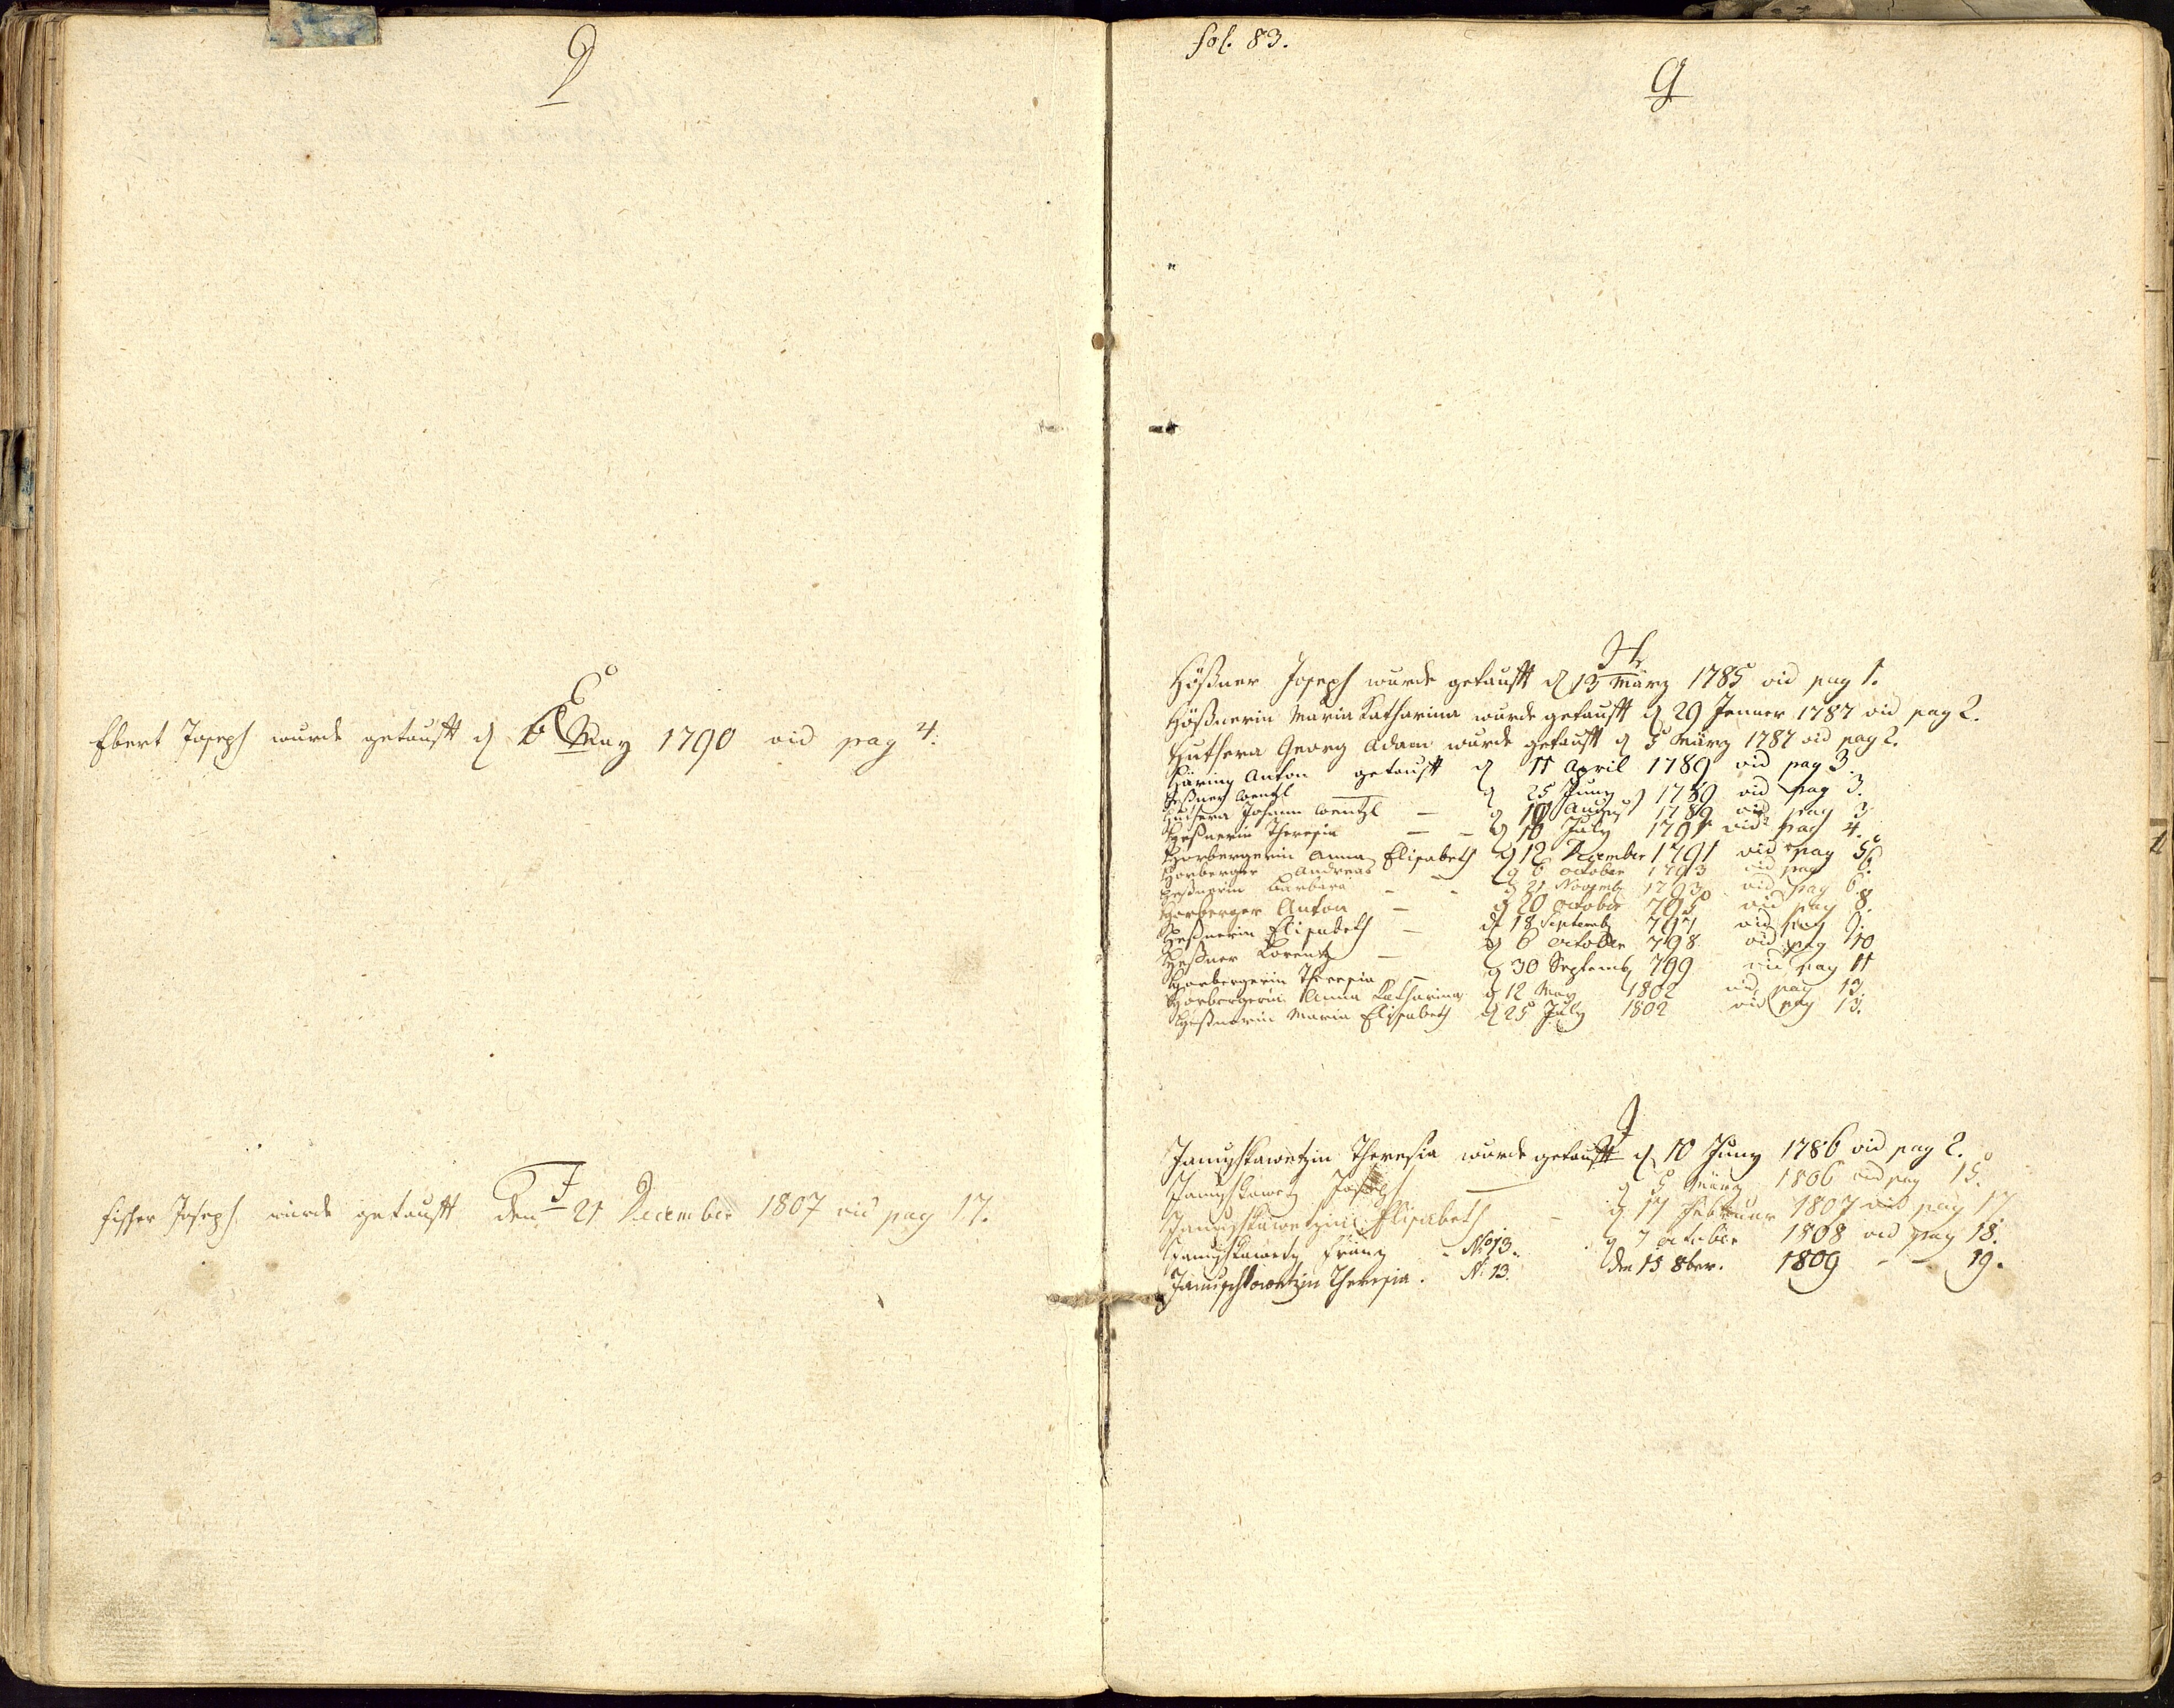 D
E
Ebert Joseph wurde getaufft d 6 May 1790 vid pag 4.
F
Fisher Joseph wurde getaufft den 21 December 1807 vid pag 17.
fol. 83.
G
H
Hößner Joseph wurde getaufft d 13 März 1785 vid pag 1.
Hößnerin Maria Katharina wurde getaufft d 29 Jenner 1787 vid pag 2.
Huthera Georg Adam wurde getaufft d 5 März 1787 vid pag 2.
Häring Anton getaufft d 11 April 1789 vid pag 3.
Heßner Wentzl d 25 Juny 1789 vid pag 3.
Huthera Johann Wentzl — d 19 August 1789 vid pag 3
Heßnerin Theresia — — d 10 July 1791 vid pag 4.
Horbergerin Anna Elisabeth d 12 December 1791 vid pag 5.
Horberger Andreas d 6 october 1793 vid pag 6.
Heßnerin Barbara - - d 21 Novemb 1793 vid pag 6.
Horberger Anton — d 20 october 795 vid pag 8.
Heßnerin Elisabeth — d 18 Septemb 797 vid pag 9.
Heßner Lorentz — d 6 october 798 vid pag 10
Horbergerin Theresia — d 30 Septemb 799 vid pag 11
Horbergerin Anna Katharina d 12 May 1802 vid pag 13.
Heßnerin Maria Elisabeth d 25 July 1802 vid pag 13.
J
Januschkawetzin Theresia wurde getaufft d 10 Juny 1786 vid pag 2.
Januschkawetz Joseph — d 5 März 1806 vid pag 15.
Januschkawetzin Elisabeth - d 17 Februar 1807 vid pag 17
Januschkawetz Frantz - No 13. d 7 october 1808 vid pag 18.
Januschkowetzin Theresia. N. 13. den 15 8ber. 1809 - - 19.